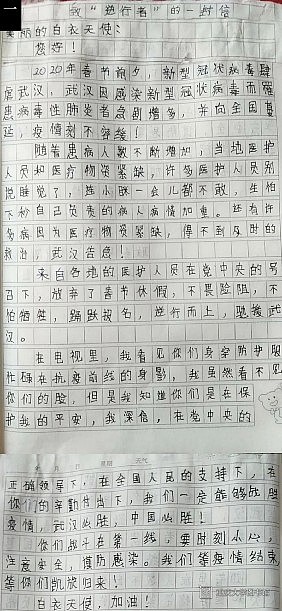 一
致“逆行者”的一封信
美丽的白衣天使：
您好！
2020年春节前夕，新型冠状病毒肆
虐武汉，武汉因感染新型冠状病毒而罹
患病毒性肺炎者急剧增多，并向全国蔓
延，疫情刻不容缓！
随着患病人数不断增加，当地医护
人员和医疗物资紧缺，许多医护人员别
说睡觉了，连小眯一会儿都不敢，生怕
下秒自己负责的病人病情加重。还有许
多病因为医疗物资紧缺，得不到及时的
救治，武汉告急！
来自各地的医护人员在党中央的号
召下，放弃了春节休假，不畏险阻，不
怕牺牲，踊跃报名，逆行而上，驰援武
汉。
在电视里，我看见你们身穿防护服
忙碌在抗疫前线的身影，我虽然看不见
你们的脸，但是我知道你们是在保
护我的平安，我深信，在党中央的
年 月 日 星期 天气
正确领导下，在全国人民的支持下，在
你们的辛勤付出下，我们一定能够战胜
疫情，武汉必胜，中国必胜！
你们战斗在第一线，要时刻小心，
注意安全，谨防感染。我们等疫情结束
等你们凯旋归来！
白衣天使，加油！